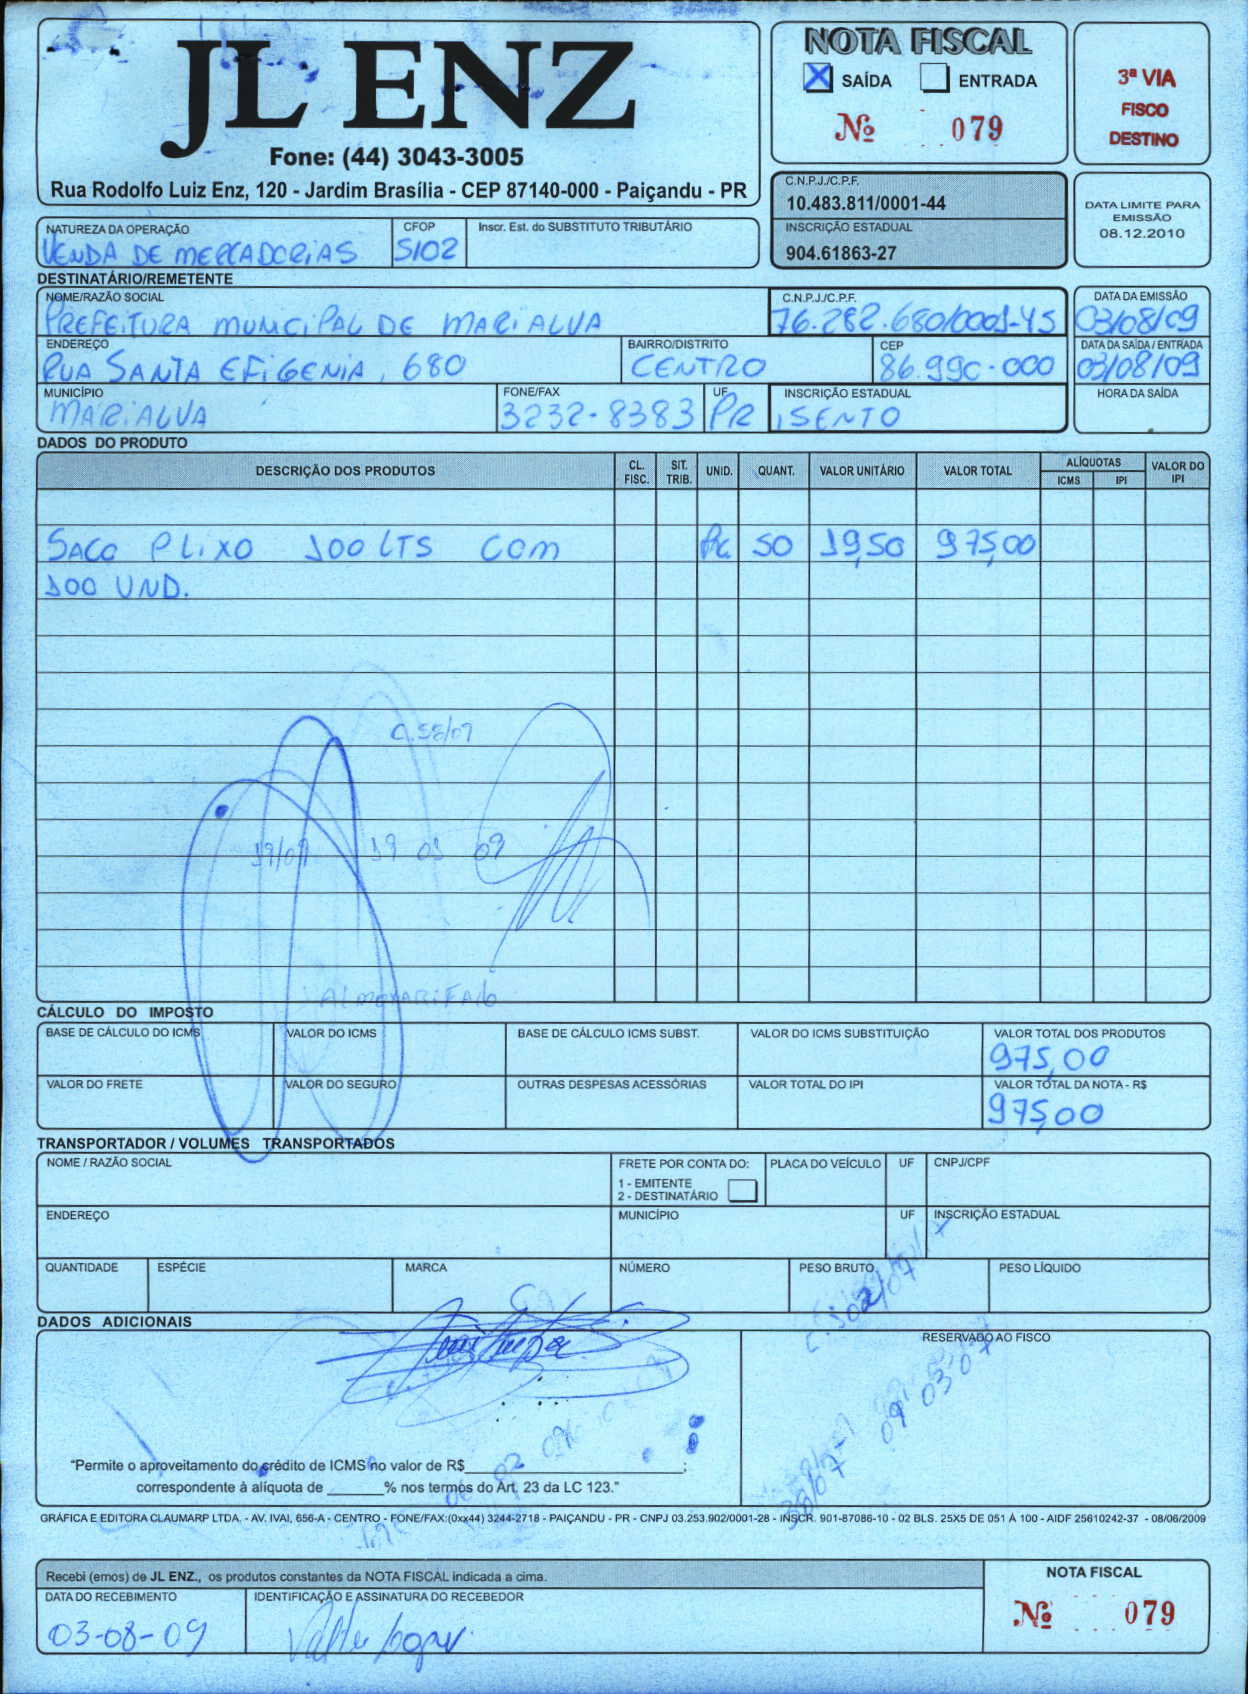 JL ENZ
Fone: (44) 3043-3005
Rua Rodolfo Luiz Enz, 120 - Jardim Brasília - CEP 87140-000 - Paiçandu - PR
NOTA FISCAL
X SAÍDA ENTRADA
Nº 079
3ª VIA
FISCO
DESTINO
C.N.P.J./C.P.F.
10.483.811/0001-44
INSCRIÇÃO ESTADUAL
904.61863-27
DATA LIMITE PARA
EMISSÃO
08.12.2010
NATUREZA DA OPERAÇÃO CFOP Inscr. Est. do SUBSTITUTO TRIBUTÁRIO
VENDA DE MERCADORiAS 5102
DESTINATÁRIO/REMETENTE
NOME/RAZÃO SOCIAL C.N.P.J./C.P.F. DATA DA EMISSÃO
PREFEiTURA MUNiCiPAL DE MARiALVA 76.282.680/0001-45 03/08/09
ENDEREÇO BAIRRO/DISTRITO CEP DATA DA SAÍDA / ENTRADA
RUA SANTA EFiGENiA, 680 CENTRO 86.990-000 03/08/09
MUNICÍPIO FONE/FAX UF INSCRIÇÃO ESTADUAL HORA DA SAÍDA
MARiALVA 3232-8383 PR iSENTO
DADOS DO PRODUTO
DESCRIÇÃO DOS PRODUTOS CL. FISC. SIT. TRIB. UNID. QUANT. VALOR UNITÁRIO VALOR TOTAL ALÍQUOTAS ICMS IPI VALOR DO IPI
SACO PLiXO 100 LTS COM Pc 50 19,50 975,00
100 UND.
C.58/07
19/07 19 01 09
ALMOXARiFADO
CÁLCULO DO IMPOSTO
BASE DE CÁLCULO DO ICMS VALOR DO ICMS BASE DE CÁLCULO ICMS SUBST. VALOR DO ICMS SUBSTITUIÇÃO VALOR TOTAL DOS PRODUTOS
975,00
VALOR DO FRETE VALOR DO SEGURO OUTRAS DESPESAS ACESSÓRIAS VALOR TOTAL DO IPI VALOR TOTAL DA NOTA - R$
975,00
TRANSPORTADOR / VOLUMES TRANSPORTADOS
NOME / RAZÃO SOCIAL FRETE POR CONTA DO: PLACA DO VEÍCULO UF CNPJ/CPF
1 - EMITENTE
2 - DESTINATÁRIO
ENDEREÇO MUNICÍPIO UF INSCRIÇÃO ESTADUAL
QUANTIDADE ESPÉCIE MARCA NÚMERO PESO BRUTO PESO LÍQUIDO
DADOS ADICIONAIS
RESERVADO AO FISCO
09 03 07
"Permite o aproveitamento do crédito de ICMS no valor de R$ ;
correspondente à alíquota de % nos termos do Art. 23 da LC 123."
GRÁFICA E EDITORA CLAUMARP LTDA. - AV. IVAI, 656-A - CENTRO - FONE/FAX:(0xx44) 3244-2718 - PAIÇANDU - PR - CNPJ 03.253.902/0001-28 - INSCR. 901-87086-10 - 02 BLS. 25X5 DE 051 À 100 - AIDF 25610242-37 - 08/06/2009
Recebi (emos) de JL ENZ., os produtos constantes da NOTA FISCAL indicada a cima.
DATA DO RECEBIMENTO IDENTIFICAÇÃO E ASSINATURA DO RECEBEDOR
03-08-09
NOTA FISCAL
Nº 079